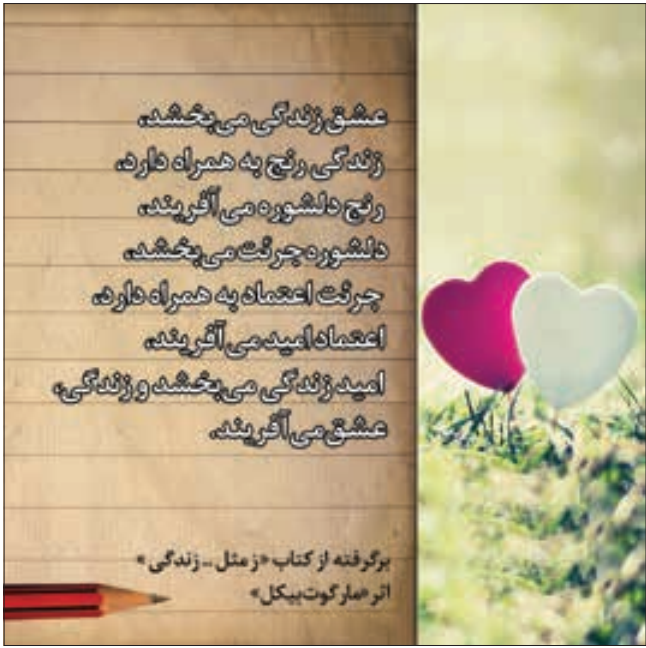 عشق زندگی می‌بخشد،
زندگی رنج به همراه دارد،
رنج دلشوره می‌آفریند،
دلشوره جرئت می‌بخشد،
جرئت اعتماد به همراه دارد،
اعتماد امید می‌آفریند،
امید زندگی می‌بخشد و زندگی،
عشق می‌آفریند.
برگرفته از کتاب «ز مثل .. زندگی»
اثر «مارگوت بیکل»